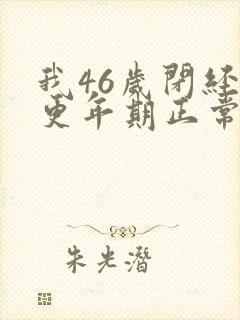 我46歲閉經
更年期正常
朱光潛